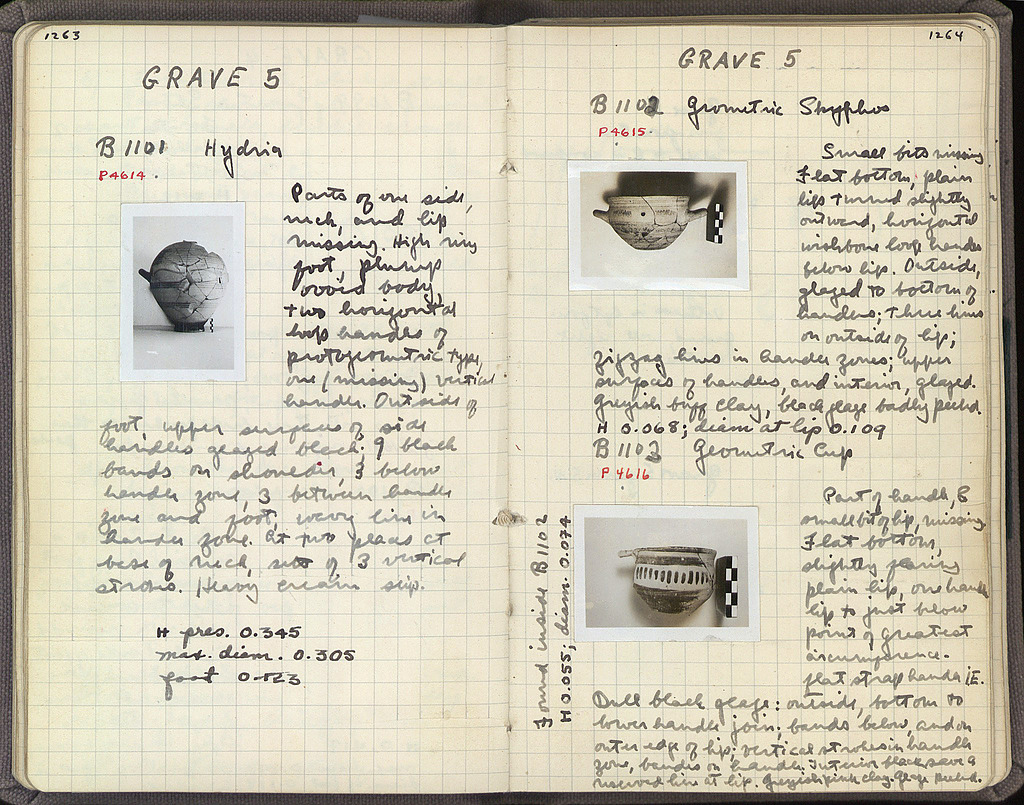 1263
GRAVE 5
B 1101 Hydria
P 4614.
Parts of one side,
neck, and lip
missing. High ring
foot, plump
ovoid body,
two horizontal
loop handles of
protogeometric type,
one (missing) vertical
handle. Outside of
foot, upper surfaces of side
handles glazed black; 9 black
bands on shoulder, 3 below
handle zone, 3 between handle
zone and foot, wavy line in
handle zone. At two places at
base of neck, sets of 3 vertical
strokes. Heavy cream slip.
H pres. 0.345
max. diam. 0.305
foot 0.123
1264
GRAVE 5
B 1102 Geometric Skyphos
P 4615.
Small bits missing
Flat bottom, plain
lips turned slightly
outward, horizontal
wishbone loop handles
below lip. Outside,
glazed to bottom of
handles; three lines
on outside of lip;
zigzag lines in handle zones; upper
surfaces of handles, and interior, glazed.
Greyish buff clay, black glaze badly peeled.
H 0.068; diam at lip 0.109
B 1103 Geometric Cup
P 4616
Found inside B 1102
H 0.055; diam. 0.074
Part of handle, &
small bit of lip, missing
Flat bottom,
slightly flaring
plain lip, one handle
lip to just below
point of greatest
circumference.
flat strap handle
Dull black glaze: outside, bottom to
lower handle join; bands below, and on
outer edge of lip; vertical strokes in handle
zone, bands on handle. Interior black save a
reserved line at lip. Greyish pink clay. Glaze peeled.